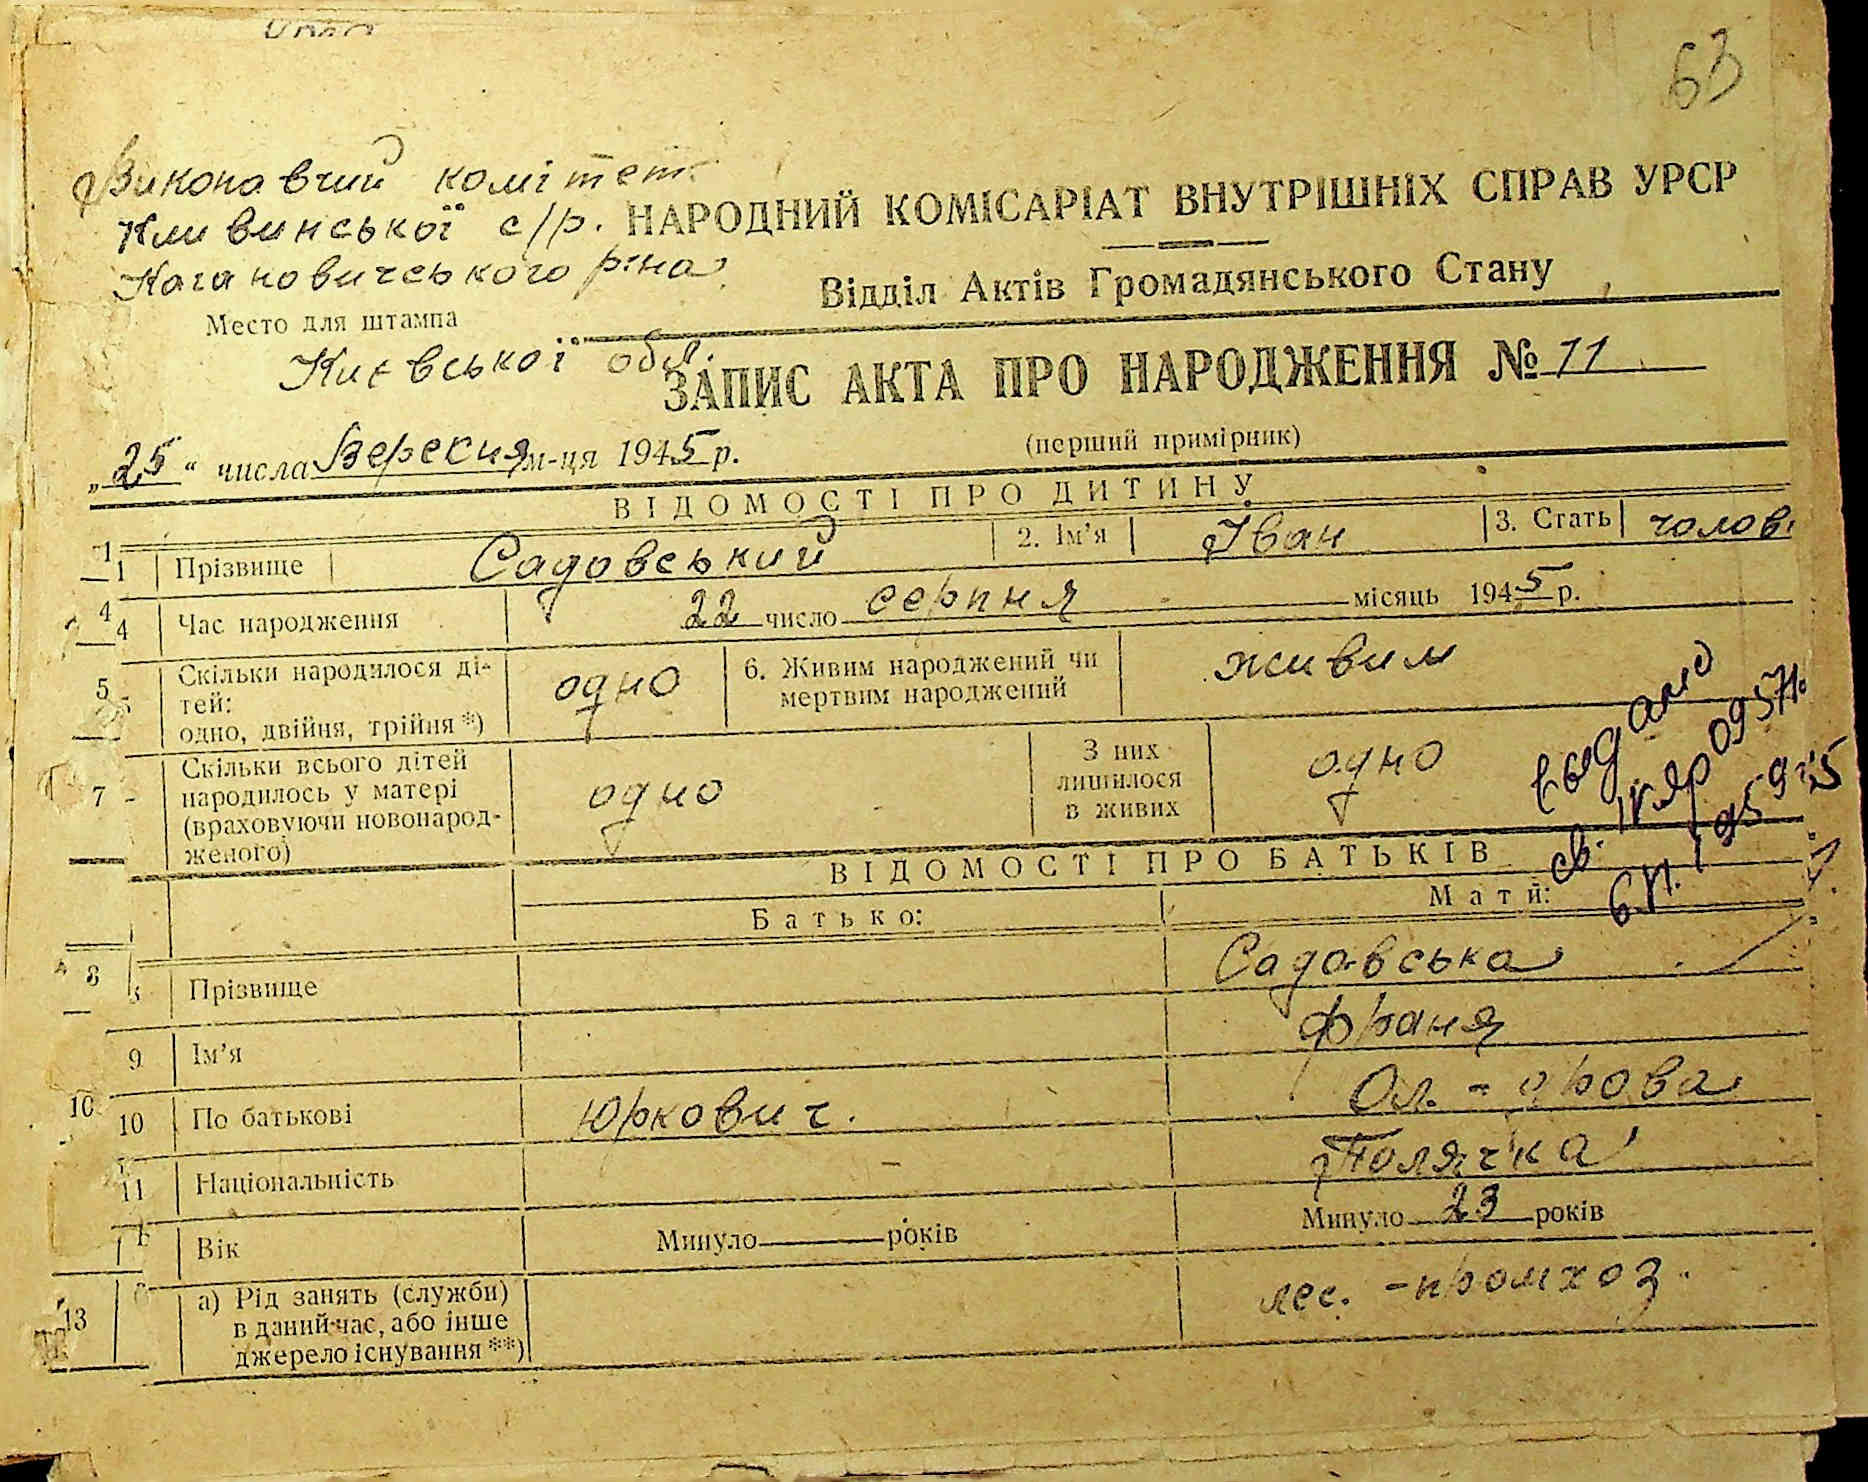 63
Виконавчий комітет
Кливинської с/р.
Кагановичського р-на
НАРОДНИЙ КОМІСАРІАТ ВНУТРІШНІХ СПРАВ УРСР
Відділ Актів Громадянського Стану
Место для штампа
Києвської обл.
ЗАПИС АКТА ПРО НАРОДЖЕННЯ № 11
(перший примірник)
„25“ числа Вересня м-ця 1945 р.
ВІДОМОСТІ ПРО ДИТИНУ
1 Прізвище Садовський 2. Ім'я Іван 3. Стать чолов.
4 Час народження 22 число серпня місяць 1945 р.
5 Скільки народилося ді-
тей:
одно, двійня, трійня *)
одно
6. Живим народжений чи
мертвим народжений
живим
7 Скільки всього дітей
народилось у матері
(враховуючи новонарод-
женого)
одно
З них
лишилося
в живих
одно
выдано
св.
ВІДОМОСТІ ПРО БАТЬКІВ
Батько: Мати:
8 Прізвище Садовська
9 Ім'я Франя
10 По батькові Юркович. Ол.-дрова
11 Національність Полячка
Вік Минуло років Минуло 23 років
13 а) Рід занять (служби)
в даний час, або інше
джерело існування **)
лес.-промхоз